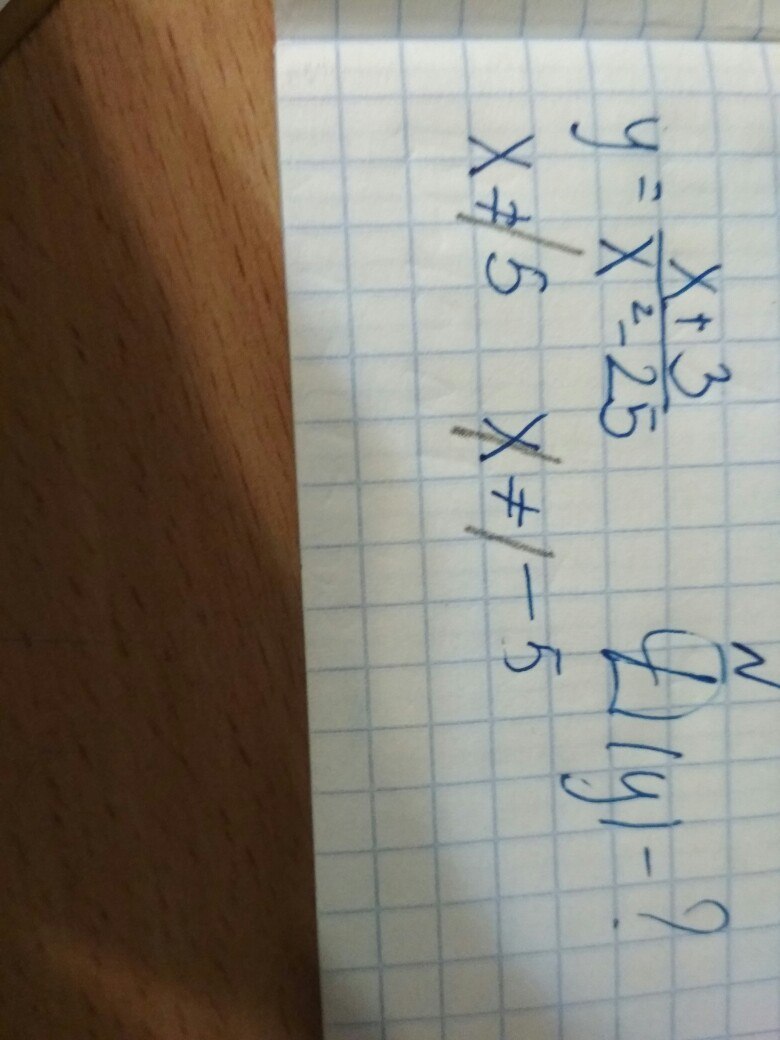 y = x + 3 / x² - 25
D(y) - ?
x ≠ 5 x ≠ - 5